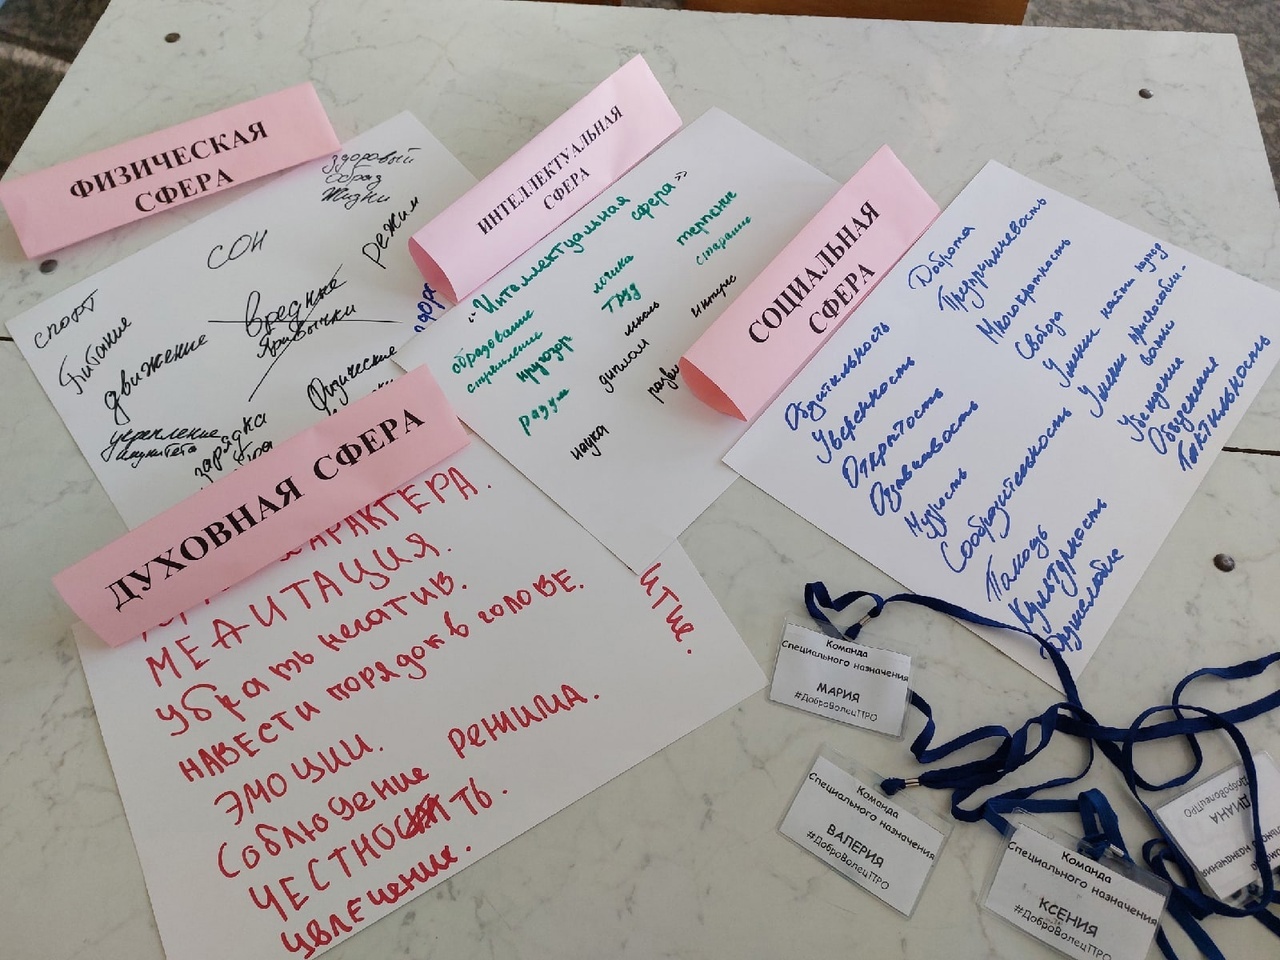 ФИЗИЧЕСКАЯ
СФЕРА
здоровый
образ
жизни
СОН
режим
спорт
Питание
движение
вредные
привычки
Физические
укрепление
иммунитета
зарядка
ИНТЕЛЛЕКТУАЛЬНАЯ
СФЕРА
"Интеллектуальная сфера"
образование
стремление
кругозор
разум
логика
труд
терпение
старание
диплом
школа
интерес
наука
СОЦИАЛЬНАЯ
СФЕРА
Доброта
Предприимчивость
Многократность
Свобода
Умение найти подход
Умение приспосабли-
ваться
Убеждение
Объединение
Тактильность
Общительность
Уверенность
Открытость
Отзывчивость
Мудрость
Сообразительность
Помощь
Культурность
Дружелюбие
ДУХОВНАЯ СФЕРА
ХАРАКТЕРА.
МЕДИТАЦИЯ.
убрать негатив.
НАВЕСТИ порядок в голове.
ЭМОЦИИ.
Соблюдение режима.
ЧЕСТНОСТЬ.
увлечения.
Команда
Специального назначения
МАРИЯ
#ДоброВолецПРО
Команда
Специального назначения
ВАЛЕРИЯ
#ДоброВолецПРО
Команда
Специального назначения
КСЕНИЯ
#ДоброВолецПРО
ДИАНА
#ДоброВолецПРО